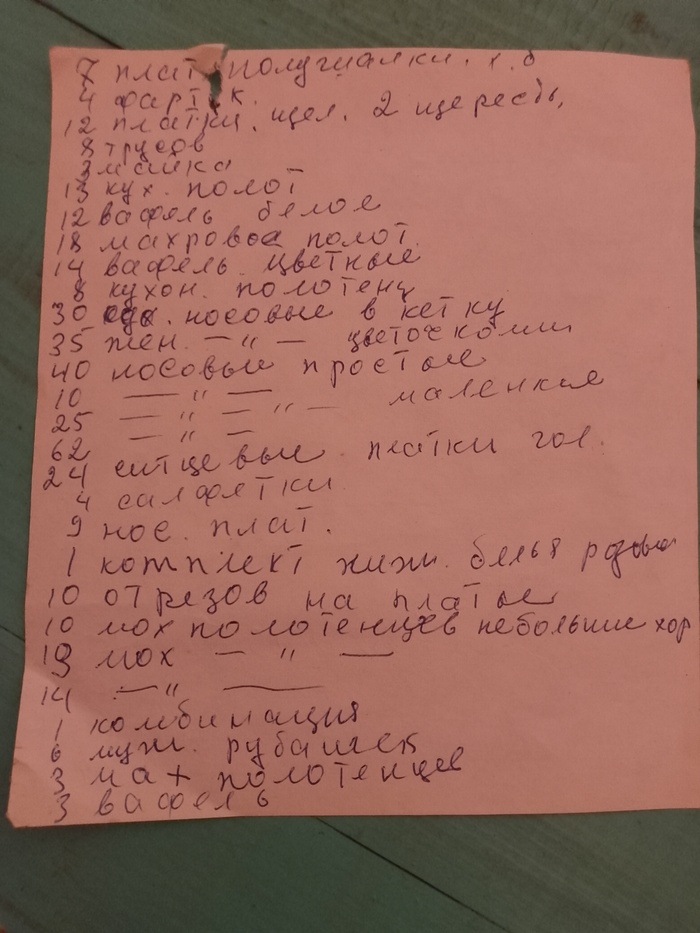 7 плат полушалки. х.б
4 фарт к.
12 платки. щел. 2 щересть,
8 трусов
3 майка
13 кух. полот
12 вафель белое
18 махровое полот.
14 вафель. цветные
8 кухон. полотенц
30 носовые в кетку
35 жен. — " — цветочкоми
40 носовые простые
10 — " —
25 — " — " — маленкие
62 — " —
24 ситцевые. платки гол.
4 салфетки
9 нос. плат.
1 комплект нижн. белья розово
10 отрезов на платье
10 мох полотенцев небольшие хор
19 мох — " —
14 — " —
1 комбинация
6 муж. рубашек
3 мах полотенцев
3 вафель